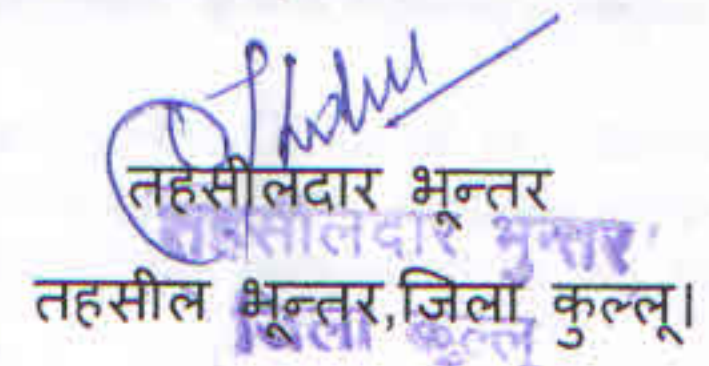 तहसीलदार भून्तर
तहसीलदार भुन्तर
तहसील भून्तर,जिला कुल्लू।
जिला कुल्लू